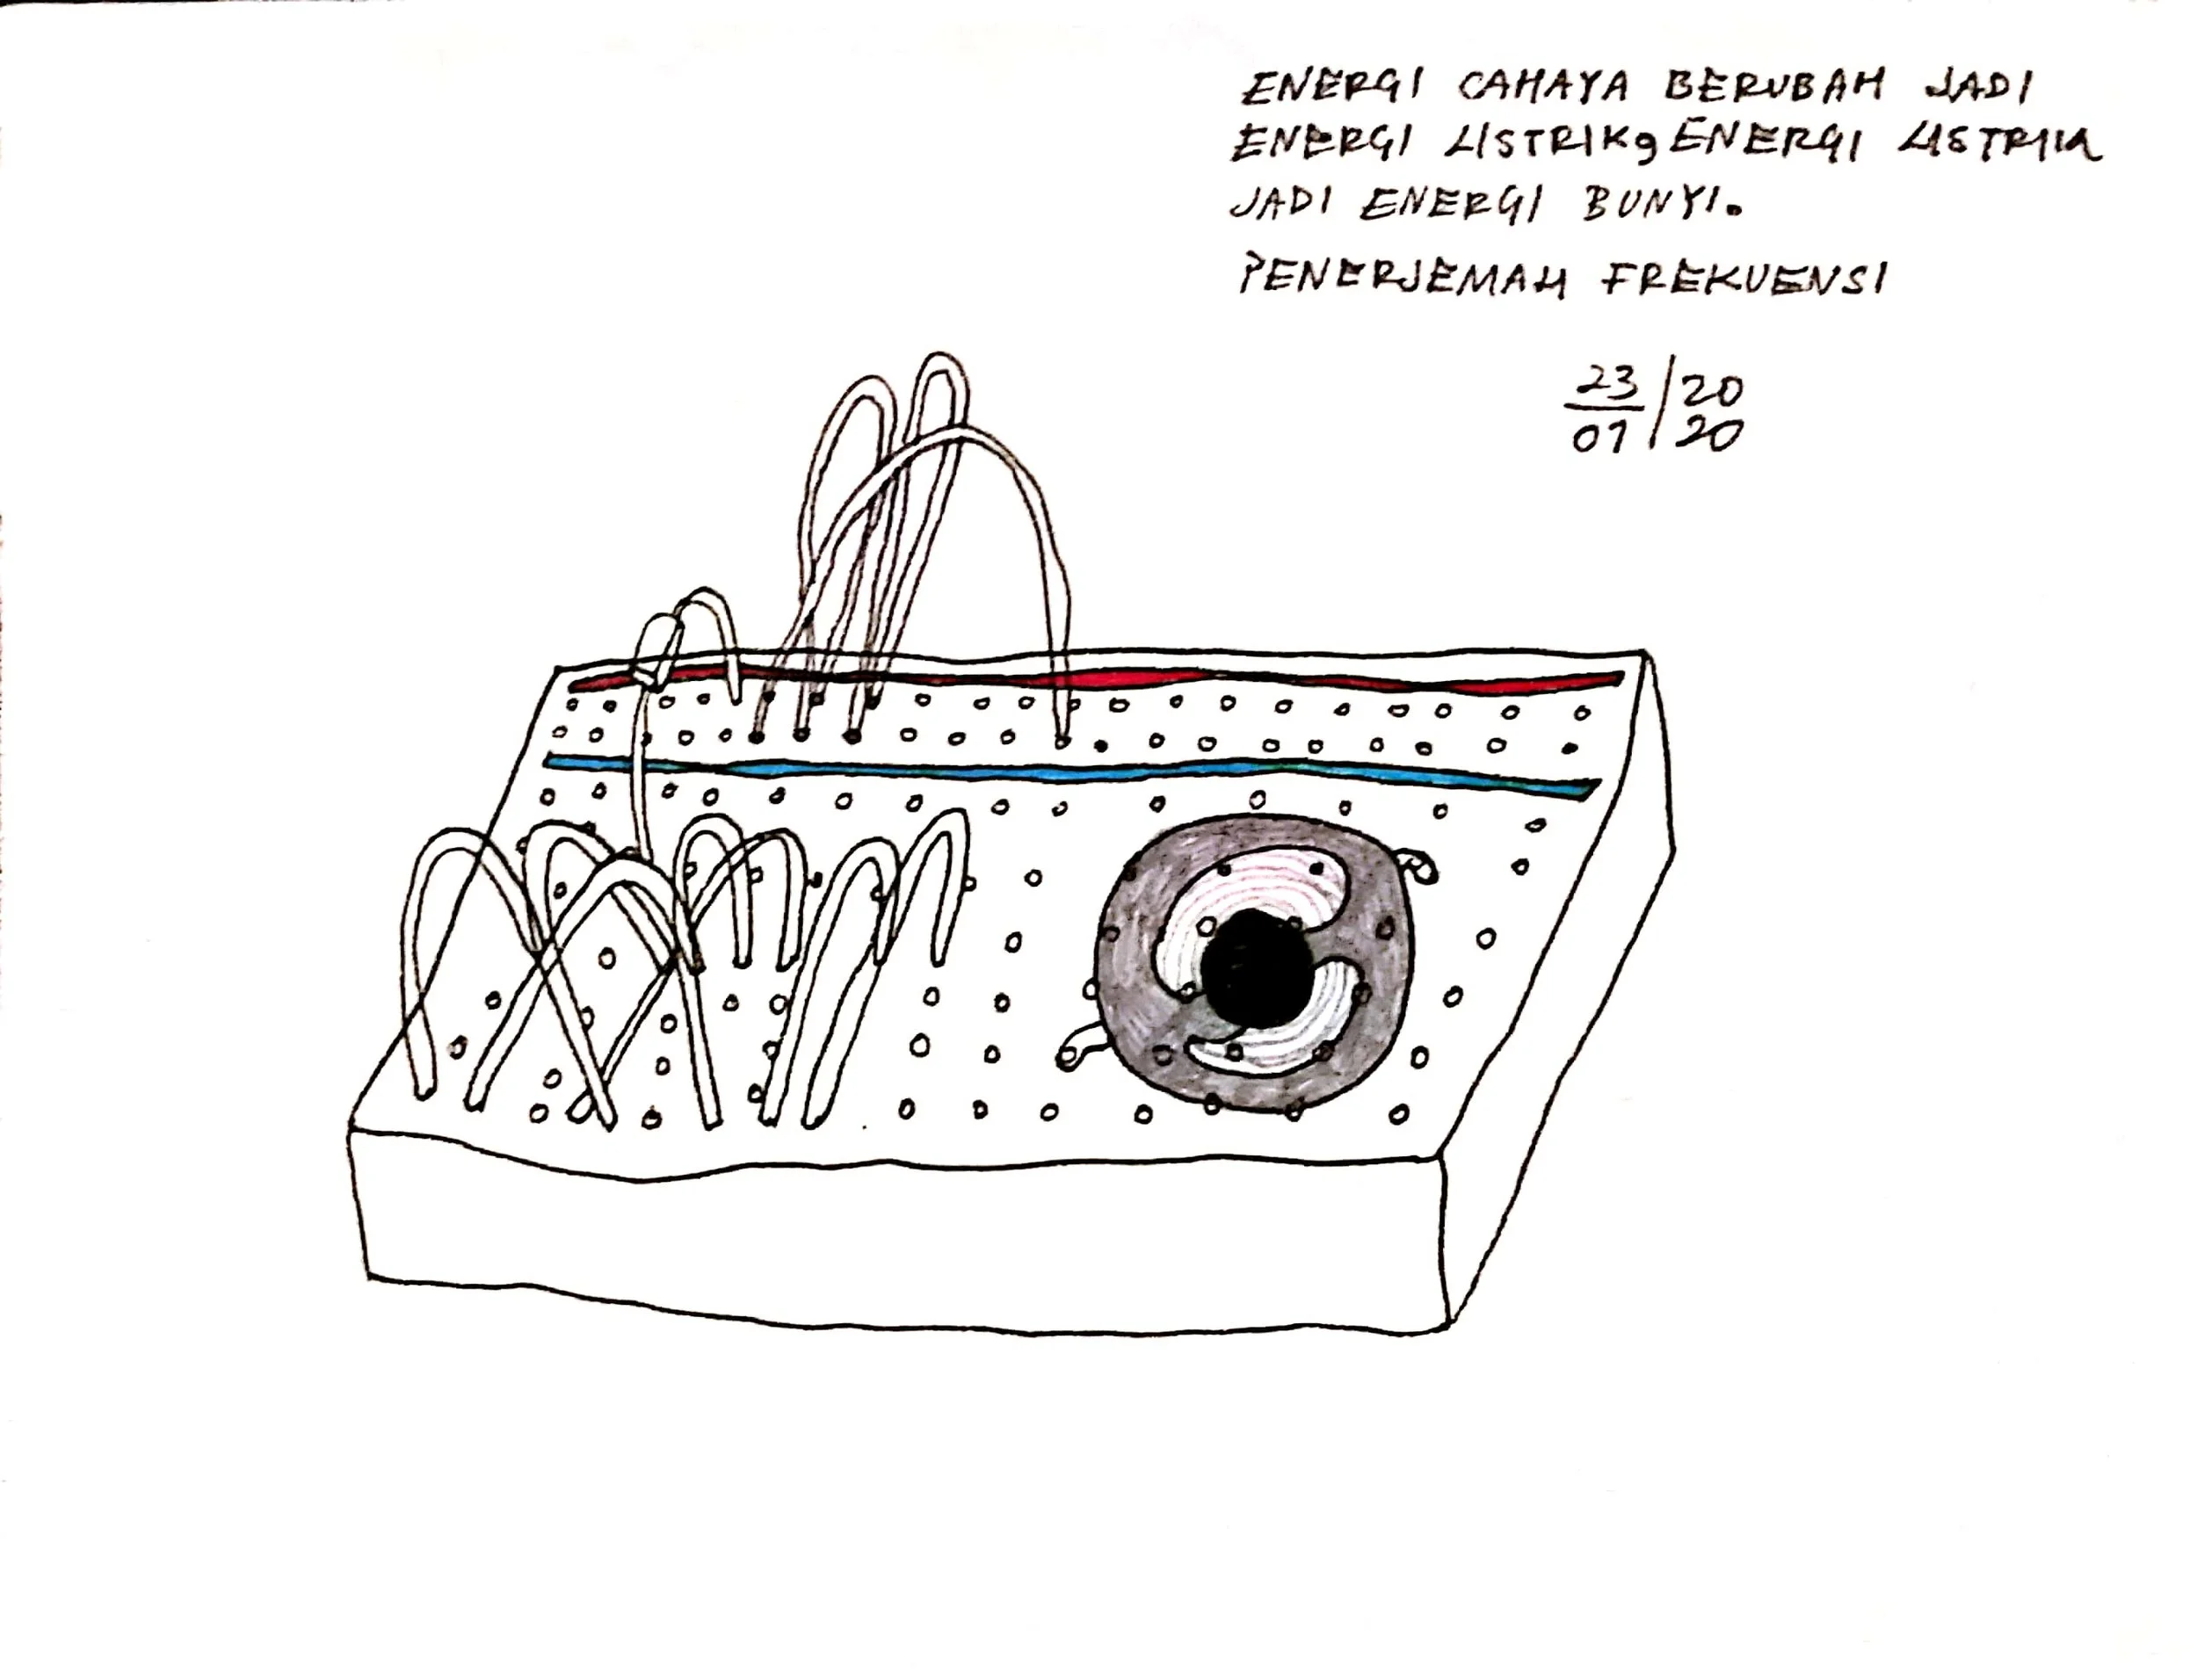 ENERGI CAHAYA BERUBAH JADI
ENERGI LISTRIK, ENERGI LISTRIK
JADI ENERGI BUNYI.
PENERJEMAH FREKUENSI
23/20
07 20